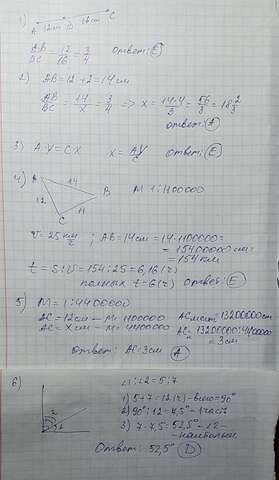 1) A 12cm B 16cm C
AB/BC = 12/16 = 3/4 ответ: (E)
2) AB = 12+2 = 14cm
AB/BC = 14/x = 3/4 => x = 14·4/3 = 56/3 = 18 2/3
ответ: (A)
3) A·Y = C·X x = AY/C ответ: (E)
4) A 14 B M 1:1100000
12 C 11
v = 25 км/ч; AB = 14см = 14·1100000 =
= 15400000 см =
= 154 км
t = S:v = 154:25 = 6,16 (ч)
полных t = 6 (ч) ответ: (E)
5) M = 1:4400000
AC = 12см – M: 1100000 AC 13200000 см
AC = Xсм – M: 4400000 AC = 13200000:4400000
= 3см
Ответ: AC = 3см (A)
6) ∠1:∠2 = 5:7
1) 5+7 = 12 (ч) – всего = 90°
2) 90°:12 = 7,5° – 1 часть
3) 7·7,5 = 52,5° – ∠2 –
– наибольший
Ответ: 52,5° (D)